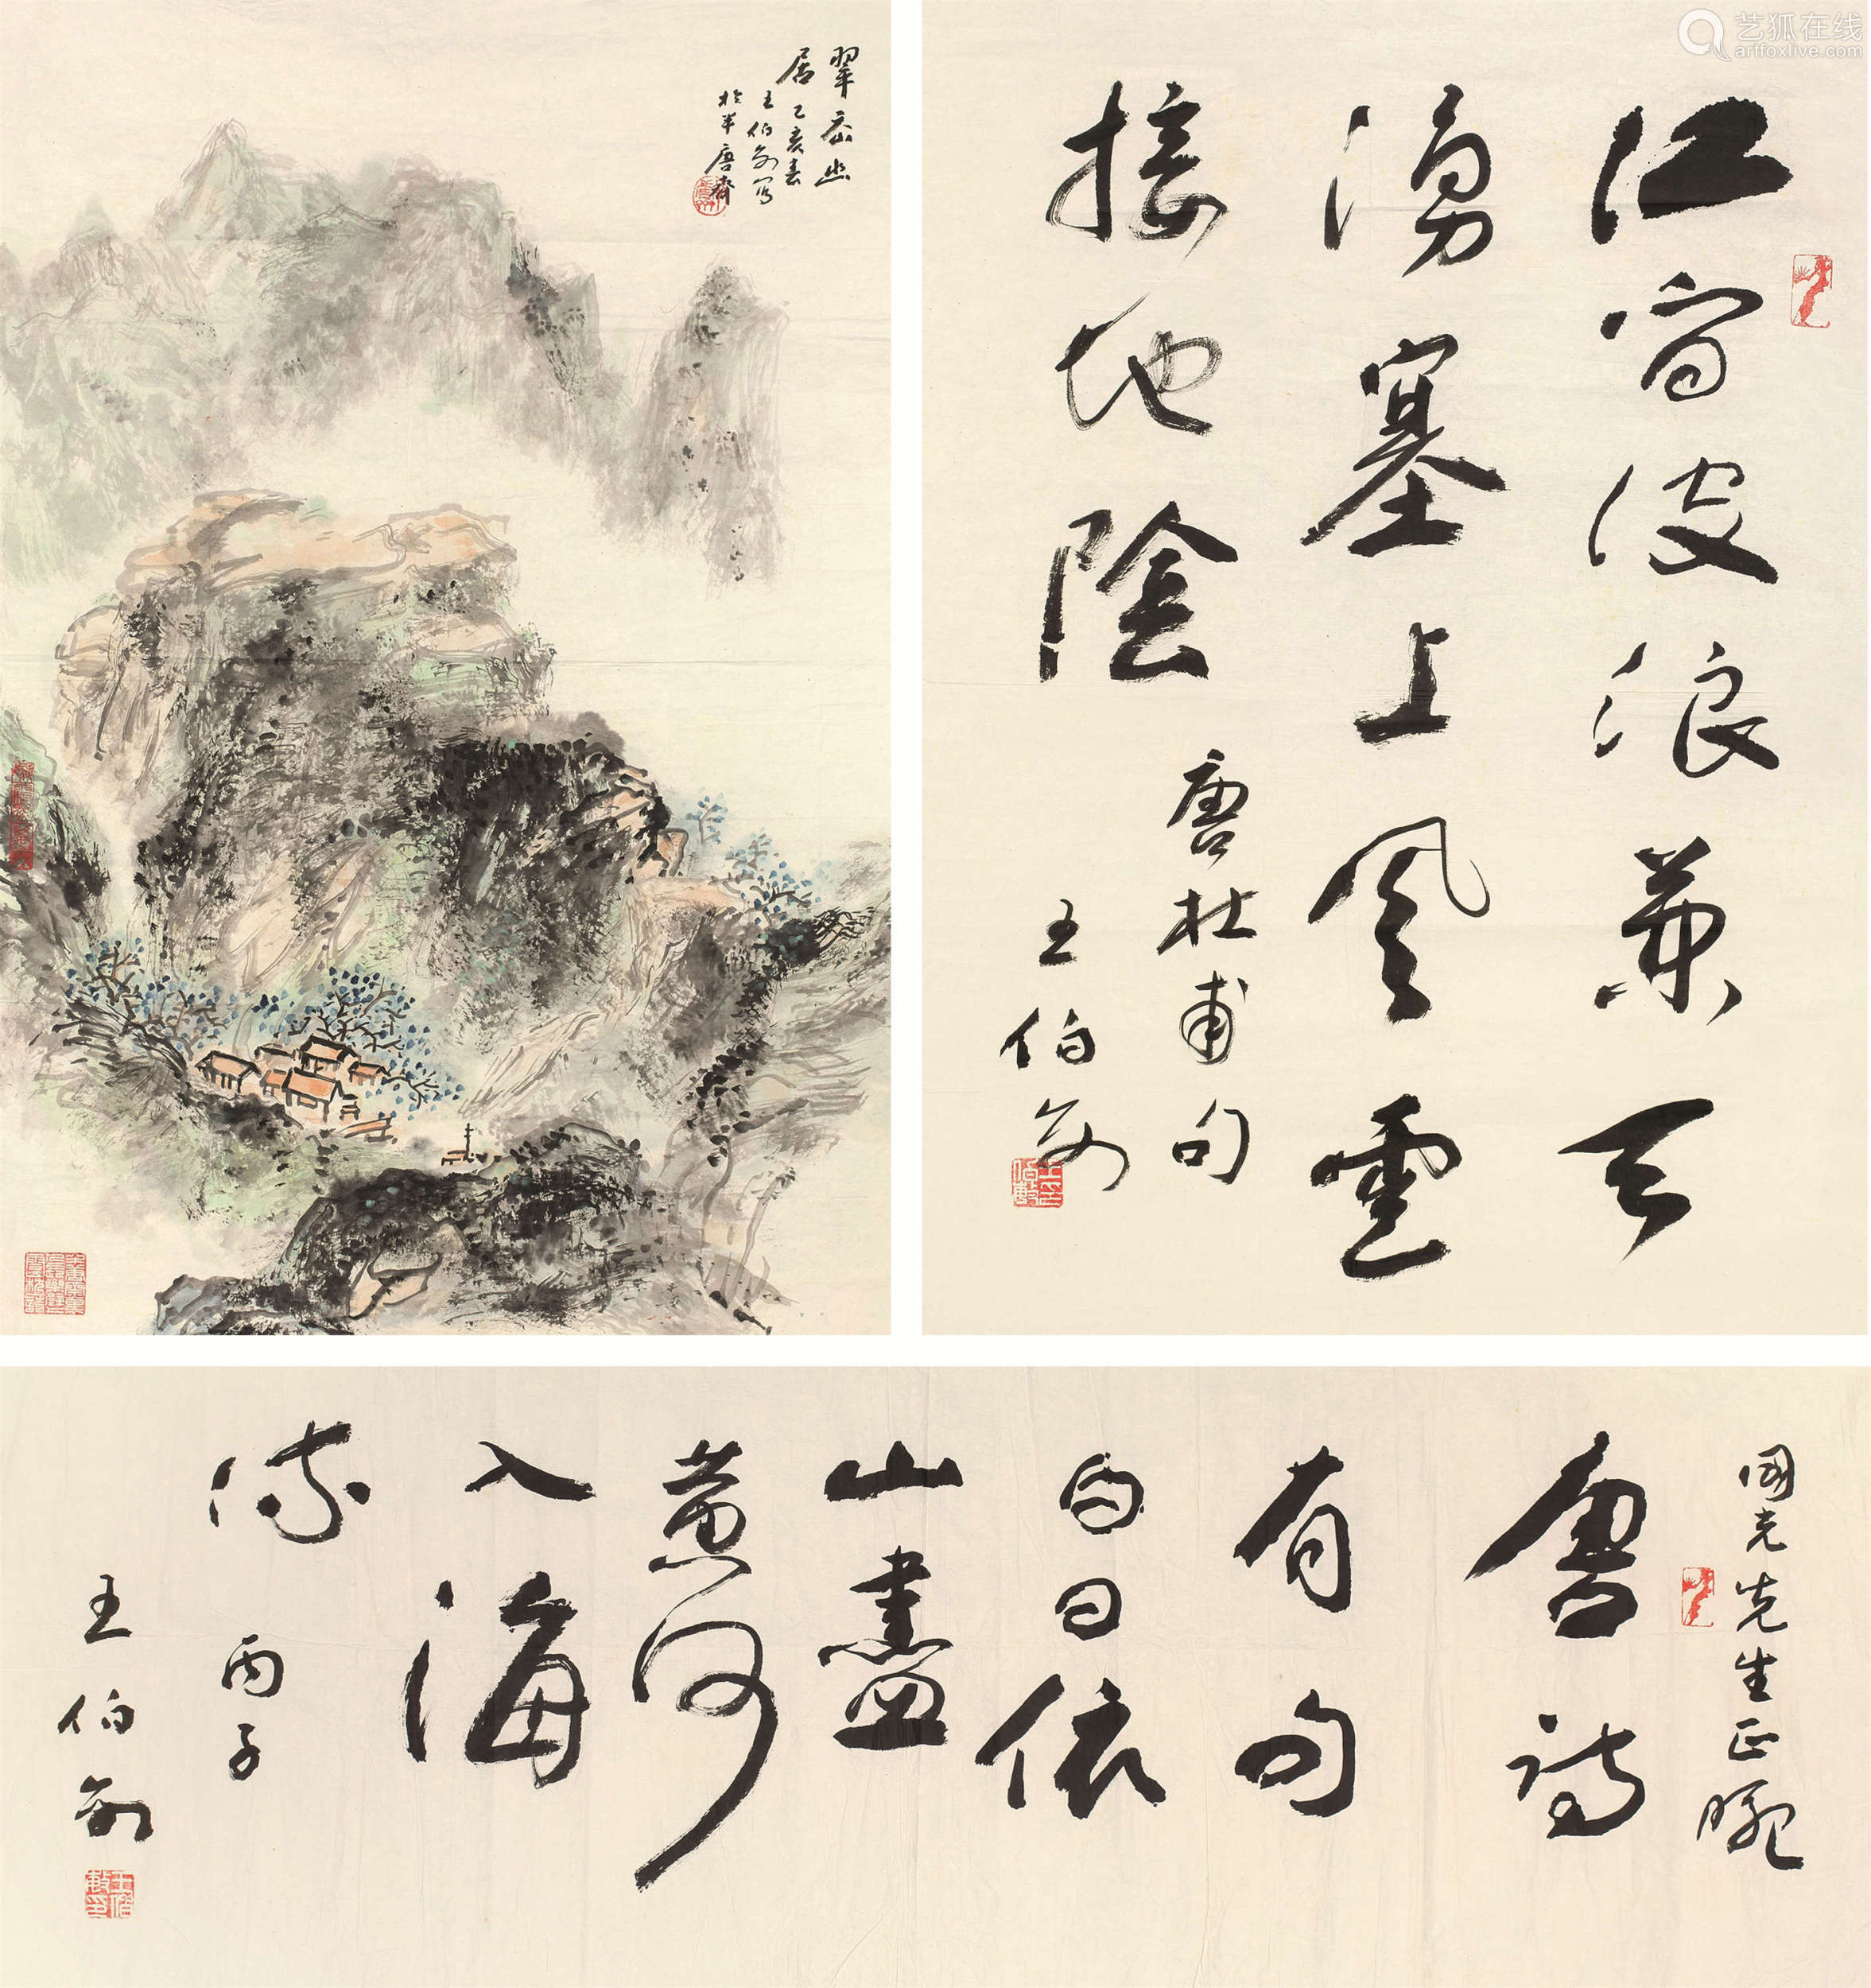 艺狐在线
artfoxlive.com
翠峦幽
居 乙亥春
王伯敏写
於半唐齋
江間波浪兼天
湧塞上風雲
接地陰
唐杜甫句
王伯敏
國克先生正腕
唐詩
有句
白日依
山盡
黄河
入海
流
丙子
王伯敏